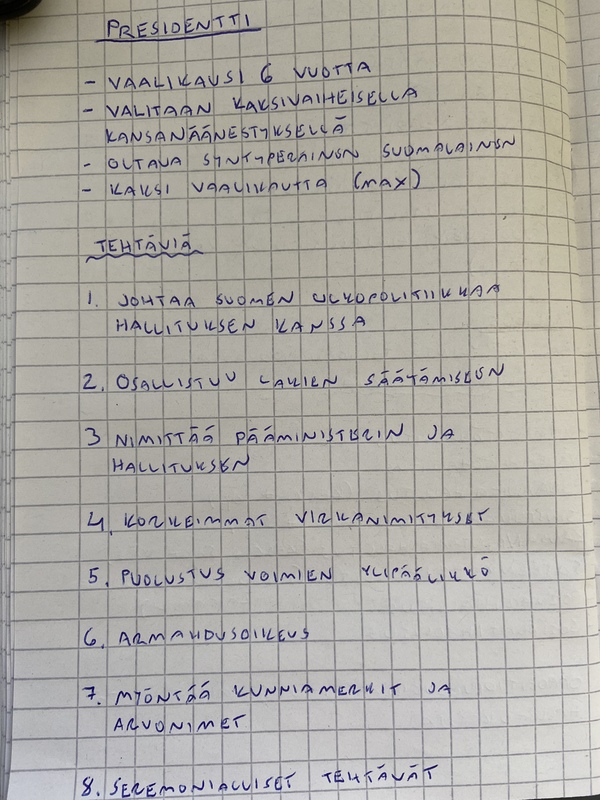 PRESIDENTTI
- VAALIKAUSI 6 VUOTTA
- VALITAAN KAKSIVAIHEISELLA
KANSANÄÄNESTYKSELLÄ
- OLTAVA SYNTYPERÄINEN SUOMALAINEN
- KAKSI VAALIKAUTTA (MAX)
TEHTÄVIÄ
1. JOHTAA SUOMEN ULKOPOLITIIKKAA
HALLITUKSEN KANSSA
2. OSALLISTUU LAKIEN SÄÄTÄMISEEN
3 NIMITTÄÄ PÄÄMINISTERIN JA
HALLITUKSEN
4. KORKEIMMAT VIRKANIMITYKSET
5. PUOLUSTUS VOIMIEN YLIPÄÄLIKKÖ
6. ARMAHDUSOIKEUS
7. MYÖNTÄÄ KUNNIAMERKIT JA
ARVONIMET
8. SEREMONIALLISET TEHTÄVÄT